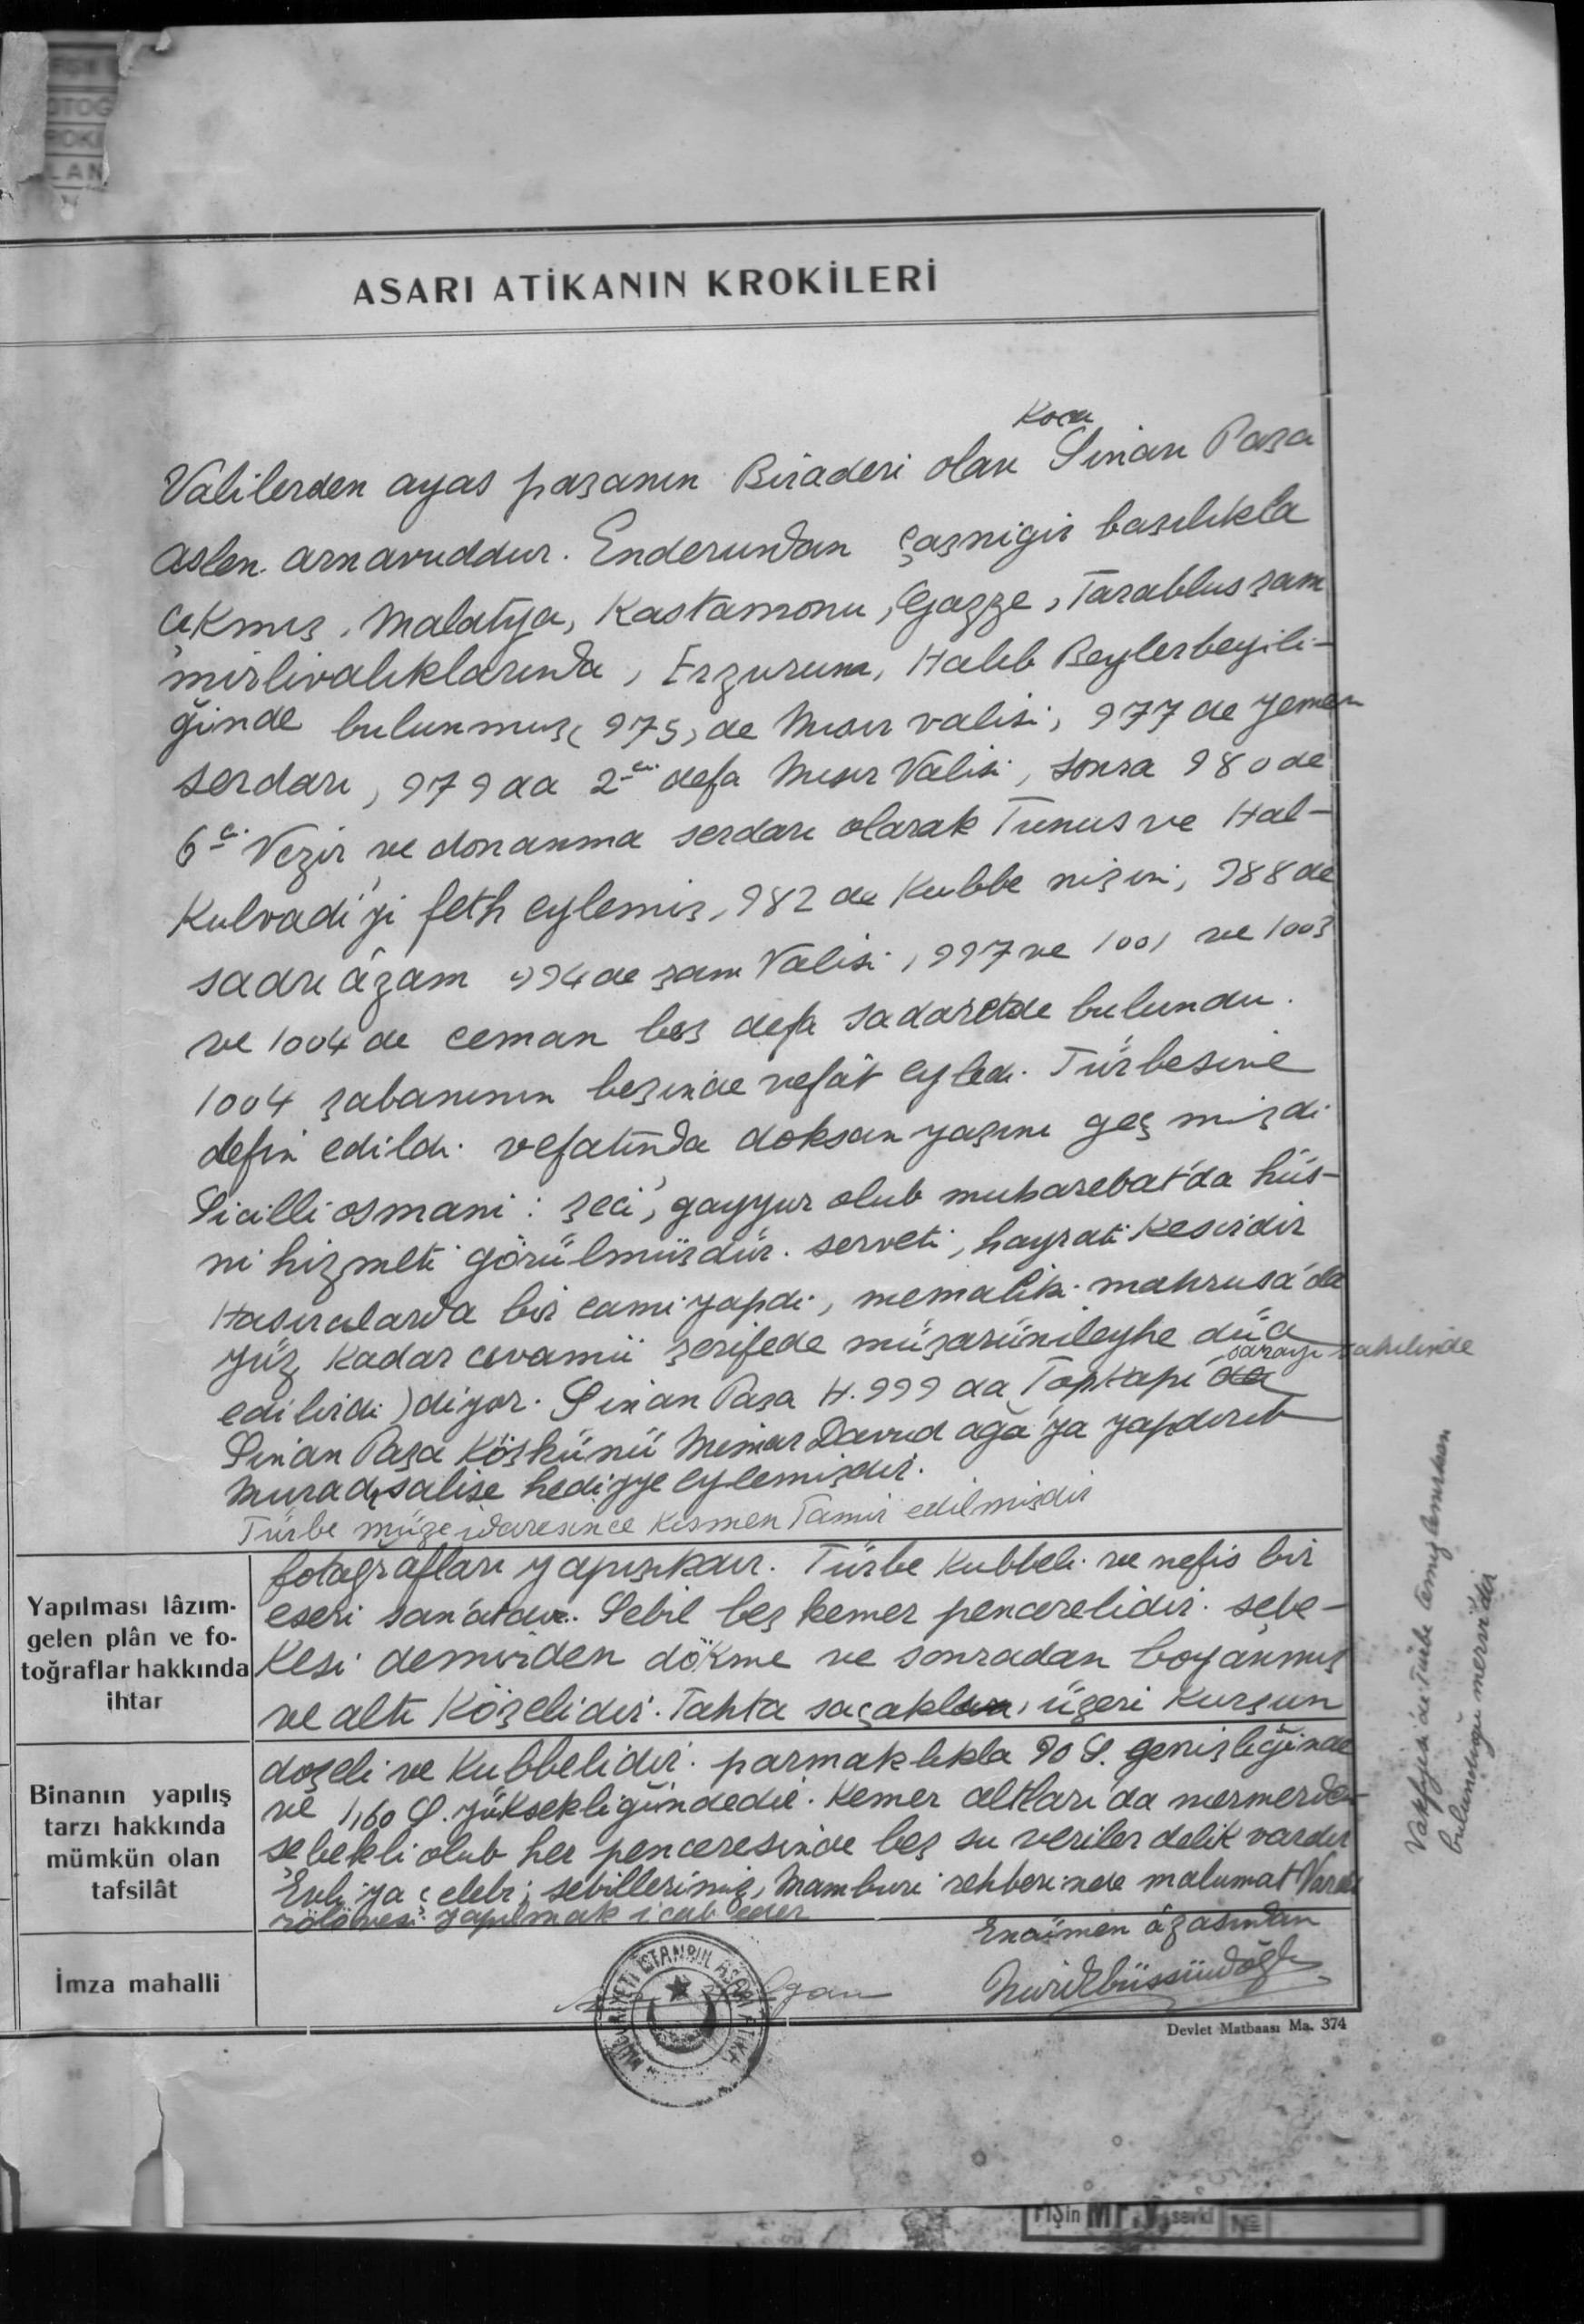 ASARI ATİKANIN KROKİLERİ
Koca
Valilerden ayas paşanın Biraderi olan Sinan Paşa
aslen arnavuddur. Enderundan çaşnigir başılıkla
çıkmış, Malatya, Kastamonu, Gazze, Tarablus şam
mirlivalıklarında, Erzurum, Haleb Beylerbeyili-
ğinde bulunmuş (975) de Mısır valisi, 977 de yemen
serdarı, 979 da 2ci defa Mısır Valisi, sonra 980 de
6cı Vezir ve donanma serdarı olarak Tunus ve Hal-
Kulvadi'yi feth eylemiş, 982 de Kubbe nişini, 988 de
sadrı âzam 994 de şam Valisi, 997 ve 1001 ve 1003
ve 1004 de ceman beş defa sadaretde bulundu.
1004 şabanının beşinde vefât eyledi. Türbesine
defin edildi. vefatında doksan yaşını geçmişdi
Sicilli osmani: şeci', gayyur olub muharebat'da hüs-
ni hizmeti görülmüşdür. serveti, hayratı Kesirdir
Hasırcılarda bir cami yapdı, memaliki mahrusa'da
yüz kadar cevamii şerifede müşarünileyhe düa
edilirdi) diyor. Sinan Paşa H. 999 da Topkapı da sarayı sahilinde
Sinan Paşa Köşkünü Mimar Davud ağa'ya yapdırıb
Murad salise hediyye eylemişdir.
Türbe müze idaresince Kısmen Tamir edilmişdir
Yapılması lâzım-
gelen plân ve fo-
toğraflar hakkında
ihtar
fotağrafları yapışıkdır. Türbe Kubbeli ve nefis bir
eseri san'atdır. Sebil beş kemer pencerelidir. şebe-
Kesi demirden dökme ve sonradan boyanmış
ve altı Köşelidir. Tahta saçaklı, üzeri Kurşun
Binanın yapılış
tarzı hakkında
mümkün olan
tafsilât
döşeli ve Kubbelidir. parmaklıkla 90 S. genişliğinde
ve 1,60 S. yüksekliğindedir. Kemer altları da mermerden
şebekli olub her penceresinde beş su veriler delik vardır
Evliya çelebi, sebillerimiz, Mamburi rehberinde malumat Vardır
rölövesi yapılmak icab eder
İmza mahalli
Encümen âzasından
Devlet Matbaası Ma. 374
Vakfiyesi de Türbe temizlenirken
bulunduğu mervidir
FİŞin